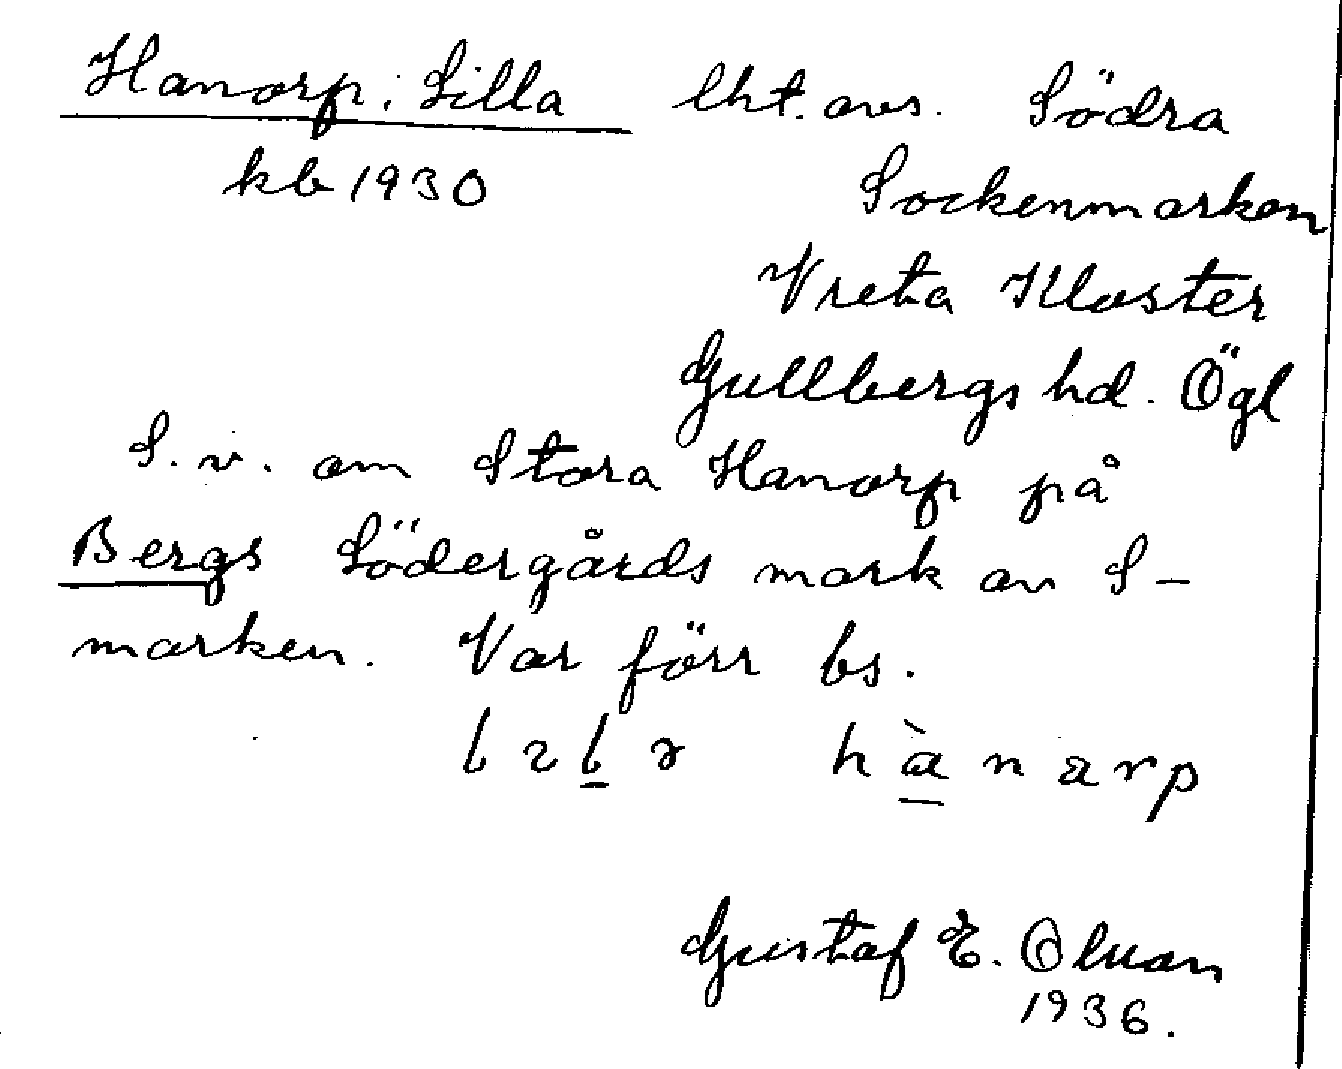 Hanorp, Lilla lht. avs. Södra
kb 1930 Sockenmarken
Vreta Kloster
Gullbergs hd. Ögl
S.v. om Stora Hanorp på
Bergs Södergårds mark av S-
marken. Var förr bs.
hànarp
Gustaf E.
1936.